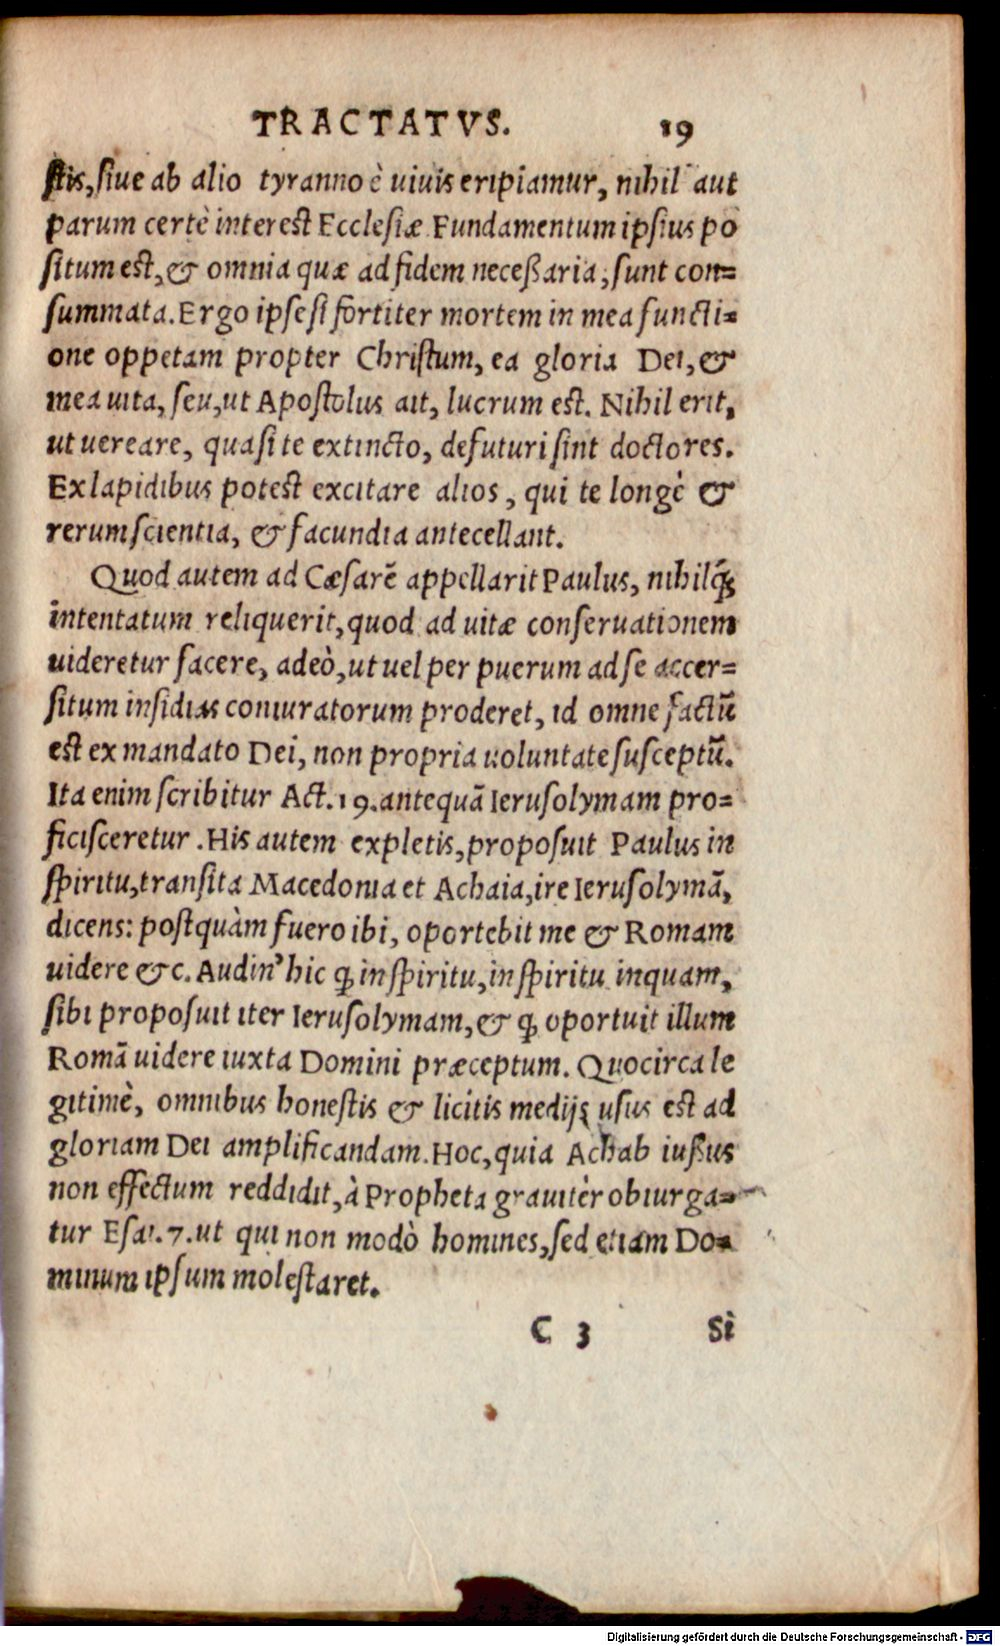 TRACTATVS. 19
ſtis, ſiue ab alio tyranno è uiuis eripiamur, nihil aut
parum certè interest Ecclesiæ Fundamentum ipsius po
ſitum est, & omnia quæ ad fidem neceßaria, ſunt con=
ſummata. Ergo ipſe ſi fortiter mortem in mea functi=
one oppetam propter Christum, ea gloria Dei, &
mea uita, ſeu, ut Apoſtolus ait, lucrum est. Nihil erit,
ut uereare, quaſi te extincto, defuturi ſint doctores.
Ex lapidibus potest excitare alios, qui te longè &
rerum ſcientia, & facundia antecellant.
Quod autem ad Cæſarē appellarit Paulus, nihilq́;
intentatum reliquerit, quod ad uitæ conſeruationem
uideretur facere, adeò, ut uel per puerum ad ſe accer=
ſitum inſidias coniuratorum proderet, id omne factū
est ex mandato Dei, non propria uoluntate ſuſceptū.
Ita enim ſcribitur Act. 19. antequā Ieruſolymam pro=
ficiſceretur. His autem expletis, propoſuit Paulus in
ſpiritu, tranſita Macedonia et Achaia, ire Ieruſolymā,
dicens: poſtquàm fuero ibi, oportebit me & Romam
uidere &c. Audin' hic ꝙ in ſpiritu, in ſpiritu inquam,
ſibi propoſuit iter Ieruſolymam, & ꝙ oportuit illum
Romā uidere iuxta Domini præceptum. Quocirca le
gitimè, omnibus honeſtis & licitis medijs uſus est ad
gloriam Dei amplificandam. Hoc, quia Achab iußus
non effectum reddidit, à Propheta grauitèr obiurga=
tur Eſai. 7. ut qui non modò homines, ſed etiam Do=
minum ipſum moleſtaret.
C 3 Sì
Digitalisierung gefördert durch die Deutsche Forschungsgemeinschaft - DFG